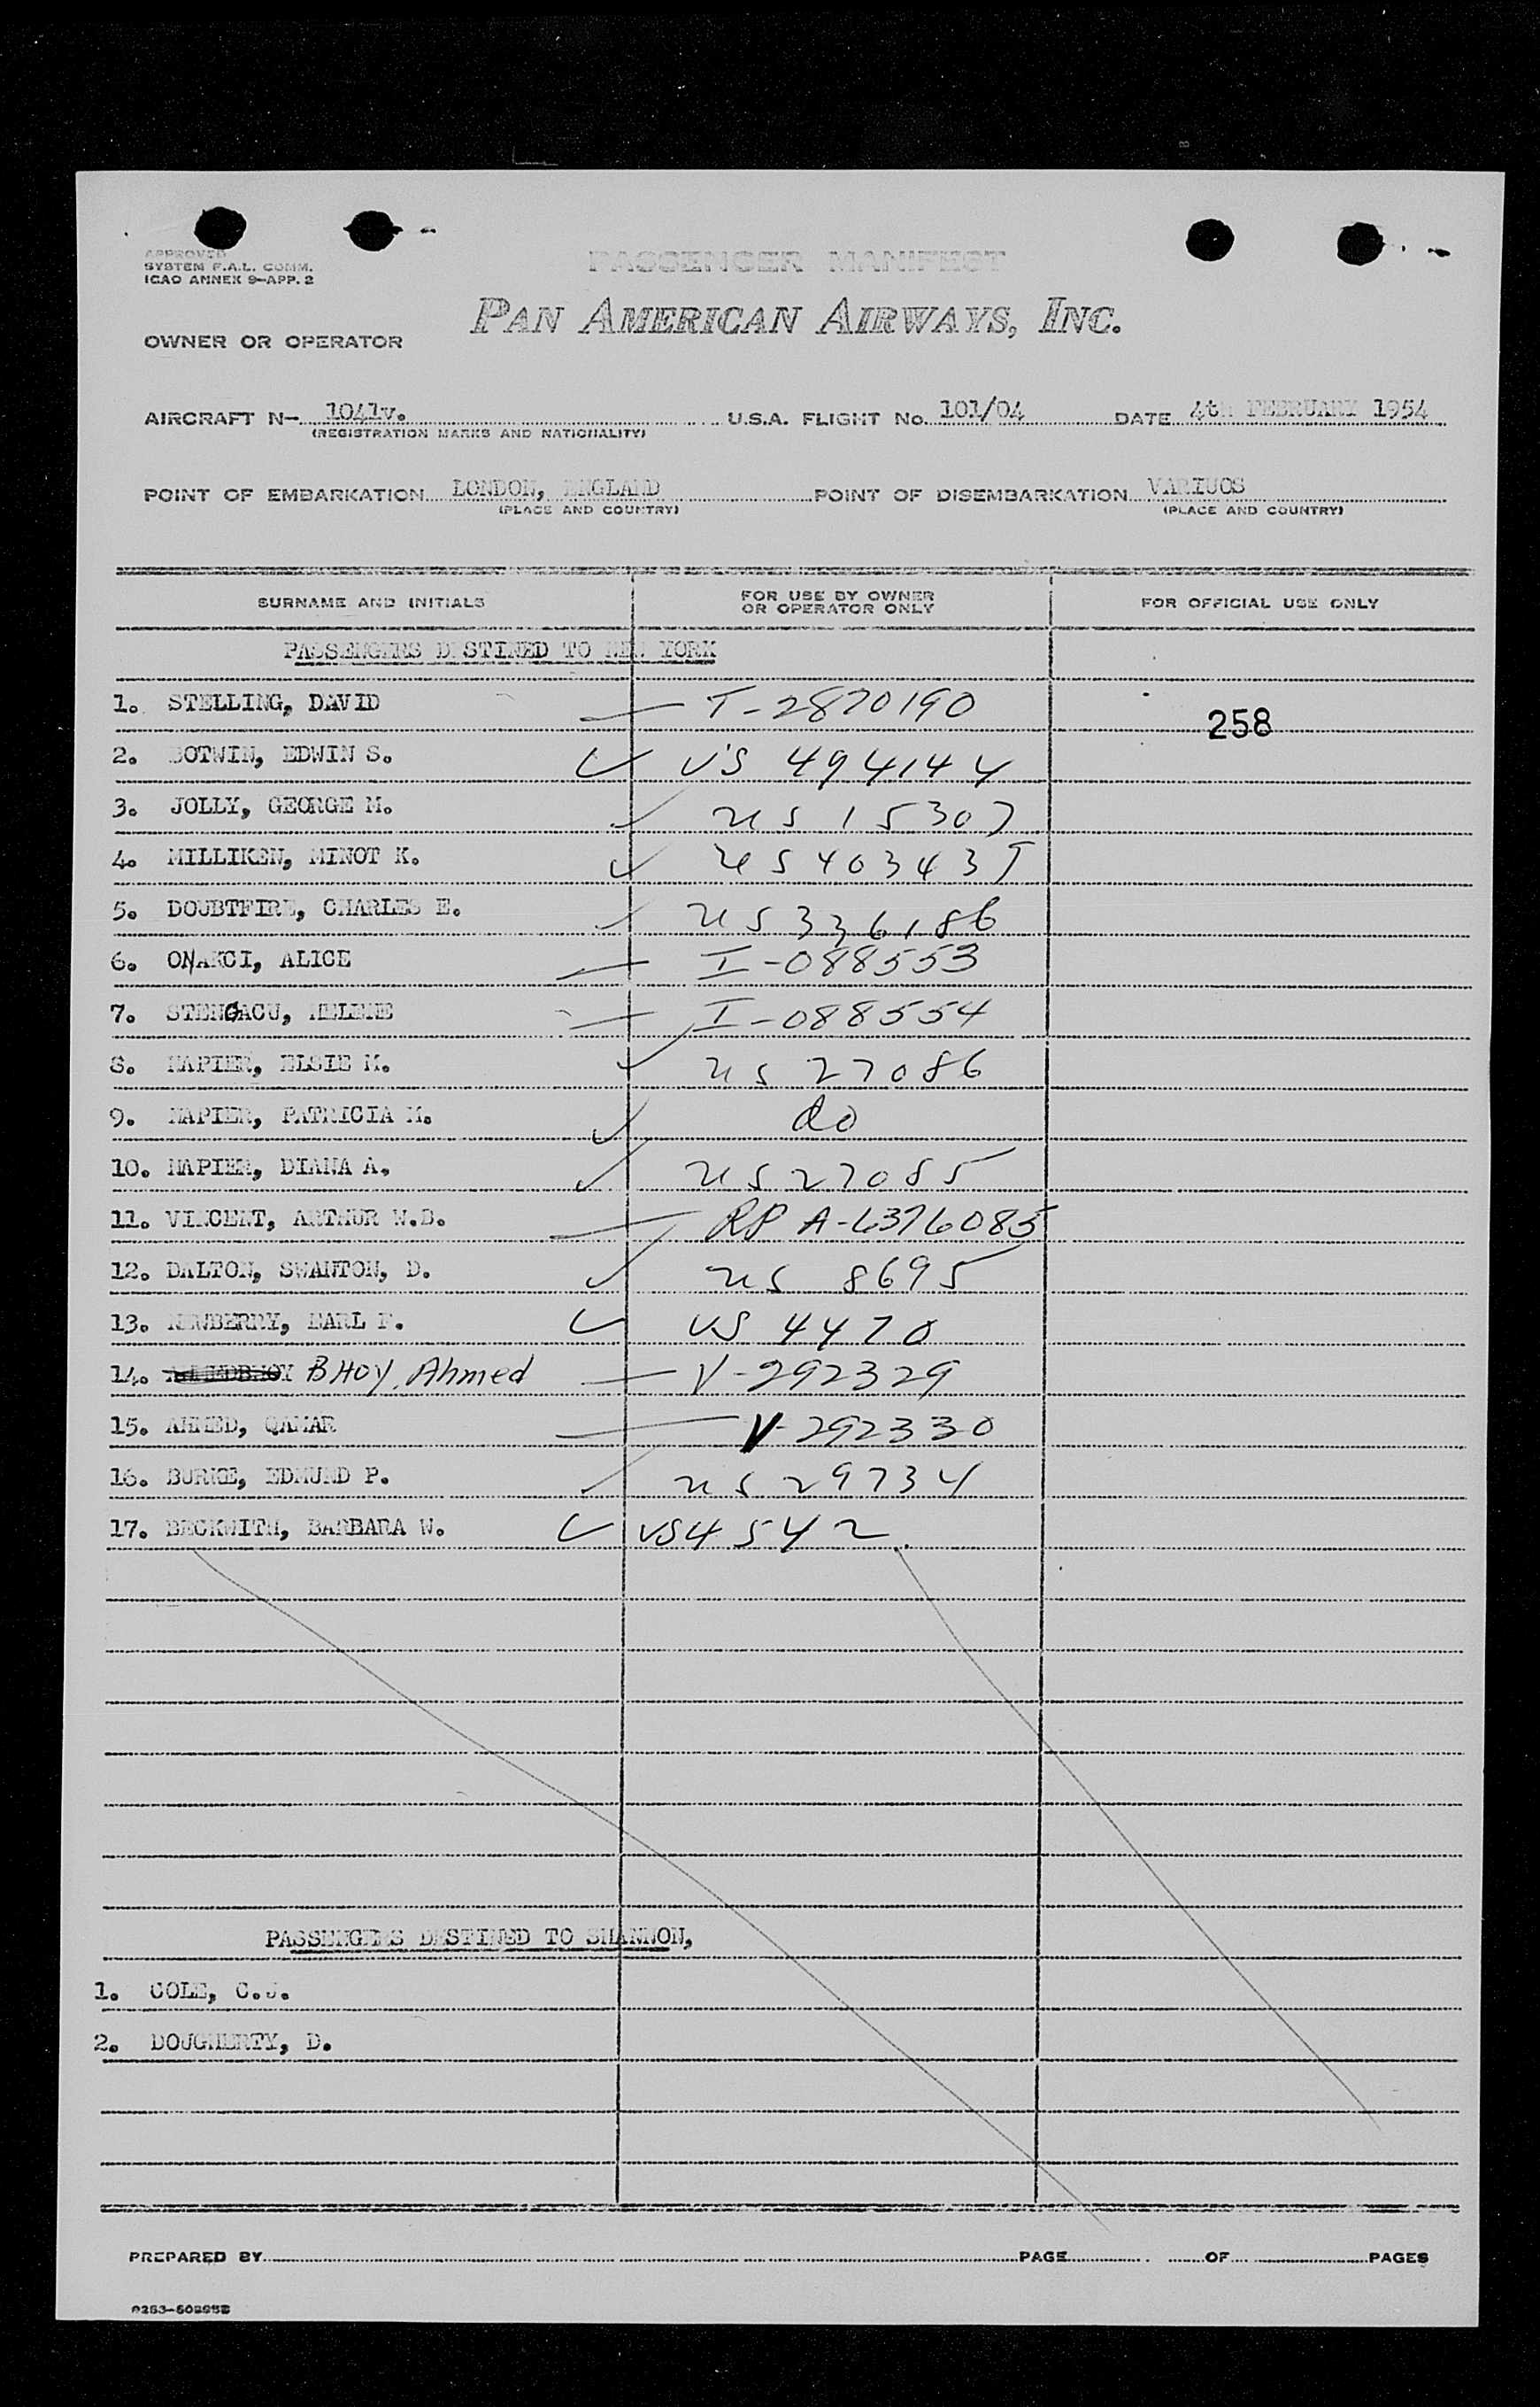 APPROVED
SYSTEM F.A.L. COMM.
ICAO ANNEX 9—APP. 2
PASSENGER MANIFEST
PAN AMERICAN AIRWAYS, INC.
OWNER OR OPERATOR
AIRCRAFT N— 1041v. U.S.A. FLIGHT No. 101/04 DATE 4th FEBRUARY 1954
(REGISTRATION MARKS AND NATIONALITY)
POINT OF EMBARKATION LONDON, ENGLAND POINT OF DISEMBARKATION VARIUOS
(PLACE AND COUNTRY) (PLACE AND COUNTRY)
SURNAME AND INITIALS FOR USE BY OWNER OR OPERATOR ONLY FOR OFFICIAL USE ONLY
PASSENGERS DESTINED TO NEW YORK
1. STELLING, DAVID T-2870190 258
2. BOTWIN, EDWIN S. US 494144
3. JOLLY, GEORGE M. US 15307
4. MILLIKEN, MINOT K. US 403437
5. DOUBTFIRE, CHARLES E. US 336186
6. ALICE I-088553
7. I-088554
8. NAPIER, ELSIE M. US 27086
9. NAPIER, PATRICIA M. do
10. NAPIER, DIANA A. US 27085
11. VINCENT, ARTHUR W.D. RP A-6376085
12. DALTON, SWANTON, D. US 8695
13. NEWBERRY, EARL F. US 4470
14. BHOY, Ahmed V-292329
15. AHMED, QAMAR V-292330
16. BURKE, EDMUND P. US 29734
17. BECKWITH, BARBARA W. US 4542
PASSENGERS DESTINED TO SHANNON,
1. COLE, C.J.
2. DOUGHERTY, D.
PREPARED BY PAGE OF PAGES